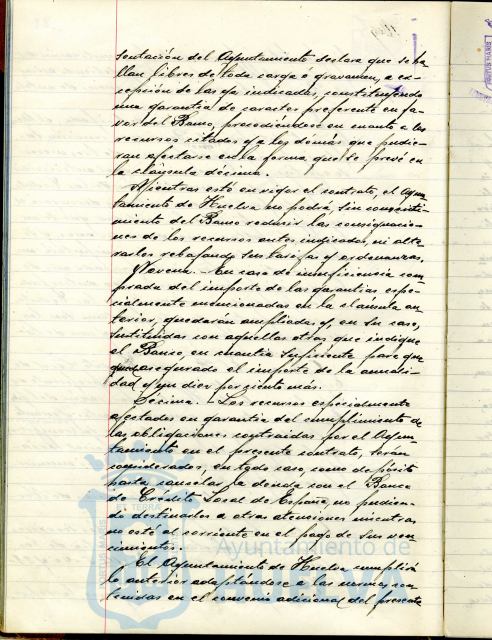 sentación del Ayuntamiento declara que se ha
llan libres de toda carga o gravamen, a ex-
cepción de las ya indicadas, constituyendo
una garantía de caracter preferente en fa-
vor del Banco, procediendose en cuanto a los
recursos citados y a los demás que pudie-
ran afectarse en la forma que se prevé en
la cláusula décima.
Mientras esté en vigor el contrato, el Ayun-
tamiento de Huelva no podrá, sin consenti-
miento del Banco reducir las consignacio-
nes de los recursos antes indicados, ni alte-
rarlos rebajando sus tarifas y ordenanzas.
Novena.- En caso de insuficiencia com-
probada del importe de las garantías espe-
cialmente mencionadas en la cláusula an-
terior, quedarán ampliadas y, en su caso,
sustituidas con aquellas otras que indique
el Banco, en cuantía suficiente para que
quede asegurado el importe de la anuali-
dad y un diez por ciento más.
Décima.- Los recursos especialmente
afectados en garantía del cumplimiento de
las obligaciones contraidas por el Ayun-
tamiento en el presente contrato, serán
considerados, en todo caso, como depósito
hasta cancelar la deuda con el Banco
de Crédito Local de España, no pudien-
do destinarlos a otras atenciones mientras
no esté al corriente en el pago de sus ven-
cimientos.
El Ayuntamiento de Huelva cumplirá
lo anterior adaptándose a las normas con-
tenidas en el convenio adicional del presente
Ayuntamiento de
HUELVA